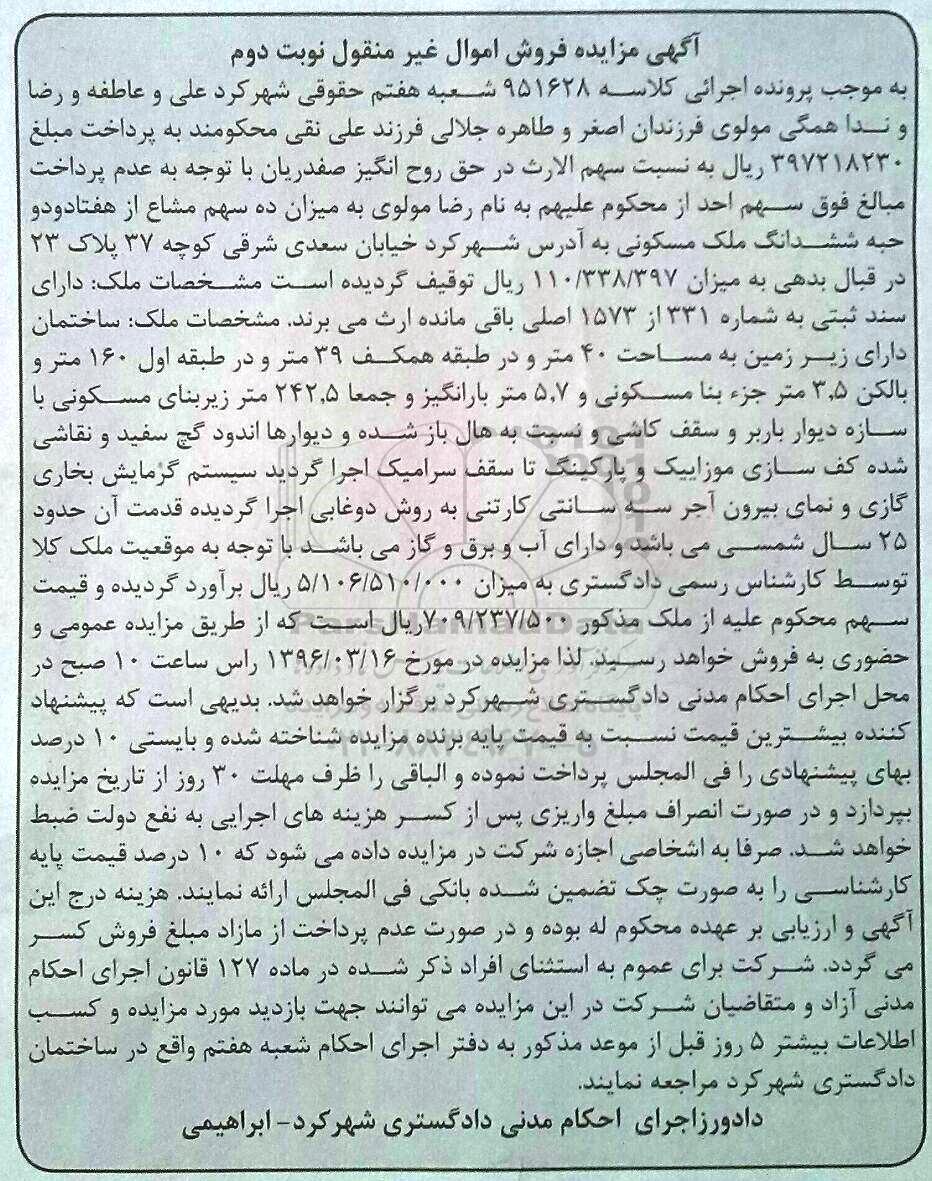 آگهی مزایده فروش اموال غیر منقول نوبت دوم
به موجب پرونده اجرائی کلاسه ۹۵۱۶۲۸ شعبه هفتم حقوقی شهرکرد علی و عاطفه و رضا
و ندا همگی مولوی فرزندان اصغر و طاهره جلالی فرزند علی نقی محکومند به پرداخت مبلغ
۳۹۷۲۱۸۲۳۰ ریال به نسبت سهم الارث در حق روح انگیز صفدریان با توجه به عدم پرداخت
مبالغ فوق سهم احد از محکوم علیهم به نام رضا مولوی به میزان ده سهم مشاع از هفتادودو
حبه ششدانگ ملک مسکونی به آدرس شهرکرد خیابان سعدی شرقی کوچه ۳۷ پلاک ۲۳
در قبال بدهی به میزان ۱۱۰/۳۳۸/۳۹۷ ریال توقیف گردیده است مشخصات ملک: دارای
سند ثبتی به شماره ۳۳۱ از ۱۵۷۳ اصلی باقی مانده ارث می برند. مشخصات ملک: ساختمان
دارای زیر زمین به مساحت ۴۰ متر و در طبقه همکف ۳۹ متر و در طبقه اول ۱۶۰ متر و
بالکن ۳,۵ متر جزء بنا مسکونی و ۵,۷ متر بارانگیز و جمعا ۲۴۲,۵ متر زیربنای مسکونی با
سازه دیوار باربر و سقف کاشی و نسبت به هال باز شده و دیوارها اندود گچ سفید و نقاشی
شده کف سازی موزاییک و پارکینگ تا سقف سرامیک اجرا گردید سیستم گرمایش بخاری
گازی و نمای بیرون آجر سه سانتی کارتنی به روش دوغابی اجرا گردیده قدمت آن حدود
۲۵ سال شمسی می باشد و دارای آب و برق و گاز می باشد با توجه به موقعیت ملک کلا
توسط کارشناس رسمی دادگستری به میزان ۵/۱۰۶/۵۱۰/۰۰۰ ریال برآورد گردیده و قیمت
سهم محکوم علیه از ملک مذکور ۷۰۹/۲۳۷/۵۰۰ریال است که از طریق مزایده عمومی و
حضوری به فروش خواهد رسید. لذا مزایده در مورخ ۱۳۹۶/۰۳/۱۶ راس ساعت ۱۰ صبح در
محل اجرای احکام مدنی دادگستری شهرکرد برگزار خواهد شد. بدیهی است که پیشنهاد
کننده بیشترین قیمت نسبت به قیمت پایه برنده مزایده شناخته شده و بایستی ۱۰ درصد
بهای پیشنهادی را فی المجلس پرداخت نموده و الباقی را ظرف مهلت ۳۰ روز از تاریخ مزایده
بپردازد و در صورت انصراف مبلغ واریزی پس از کسر هزینه های اجرایی به نفع دولت ضبط
خواهد شد. صرفا به اشخاصی اجازه شرکت در مزایده داده می شود که ۱۰ درصد قیمت پایه
کارشناسی را به صورت چک تضمین شده بانکی فی المجلس ارائه نمایند. هزینه درج این
آگهی و ارزیابی بر عهده محکوم له بوده و در صورت عدم پرداخت از مازاد مبلغ فروش کسر
می گردد. شرکت برای عموم به استثنای افراد ذکر شده در ماده ۱۲۷ قانون اجرای احکام
مدنی آزاد و متقاضیان شرکت در این مزایده می توانند جهت بازدید مورد مزایده و کسب
اطلاعات بیشتر ۵ روز قبل از موعد مذکور به دفتر اجرای احکام شعبه هفتم واقع در ساختمان
دادگستری شهرکرد مراجعه نمایند.
دادورزاجرای احکام مدنی دادگستری شهرکرد- ابراهیمی
ParsNamadData